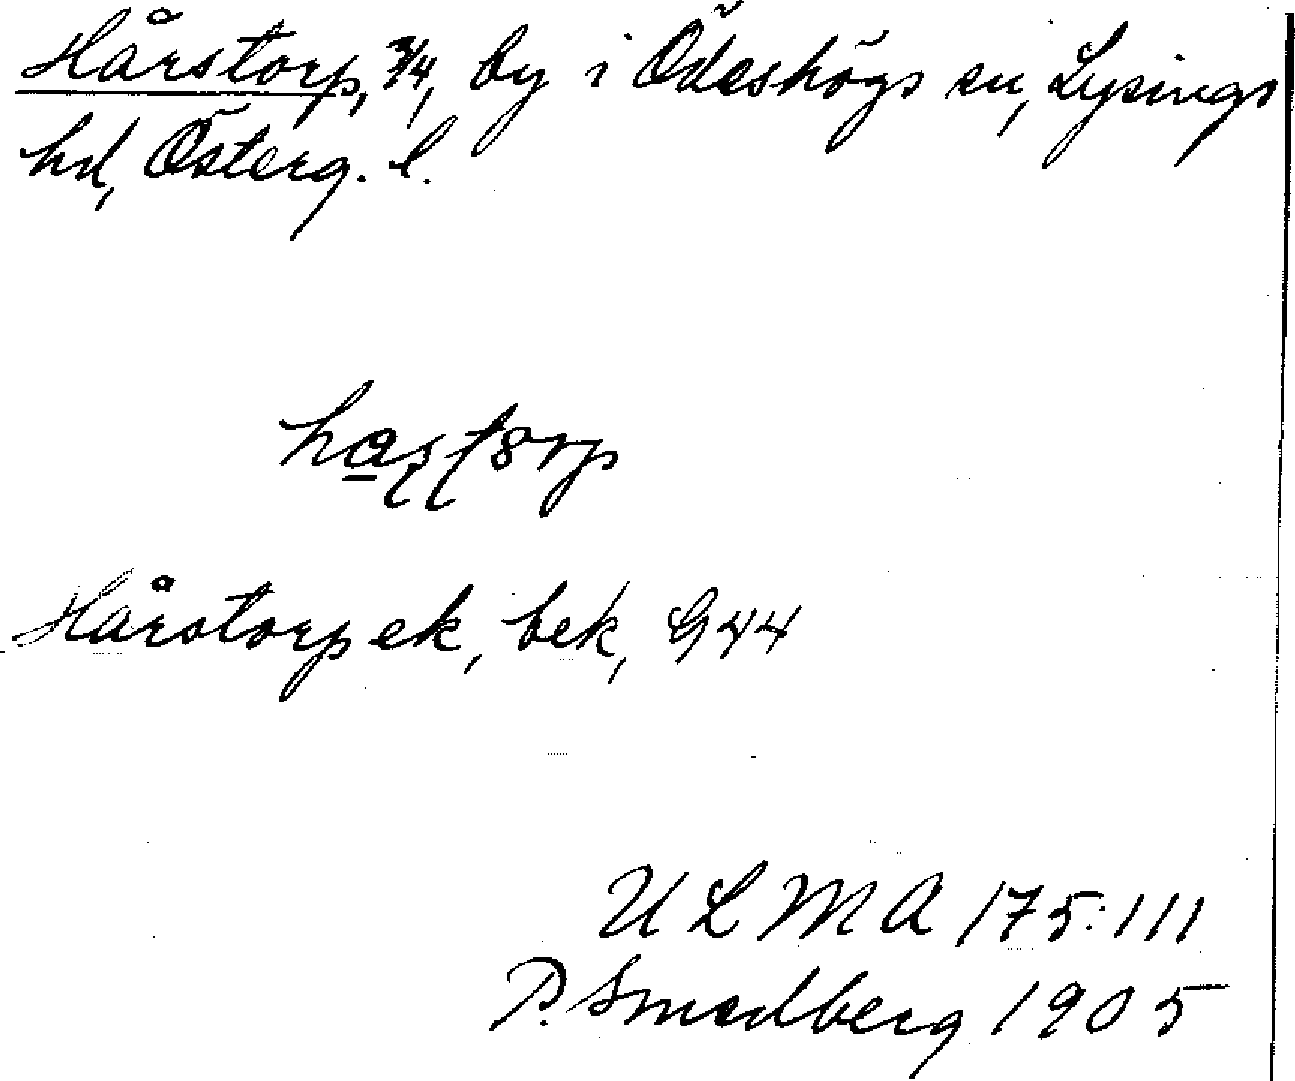 Hårstorp, 3/4, by i Ödeshögs sn, Lysings
hd, Österg. l.
Hårstorp ek, bek, G44
ULMA 175:111
P. Smedberg 1905